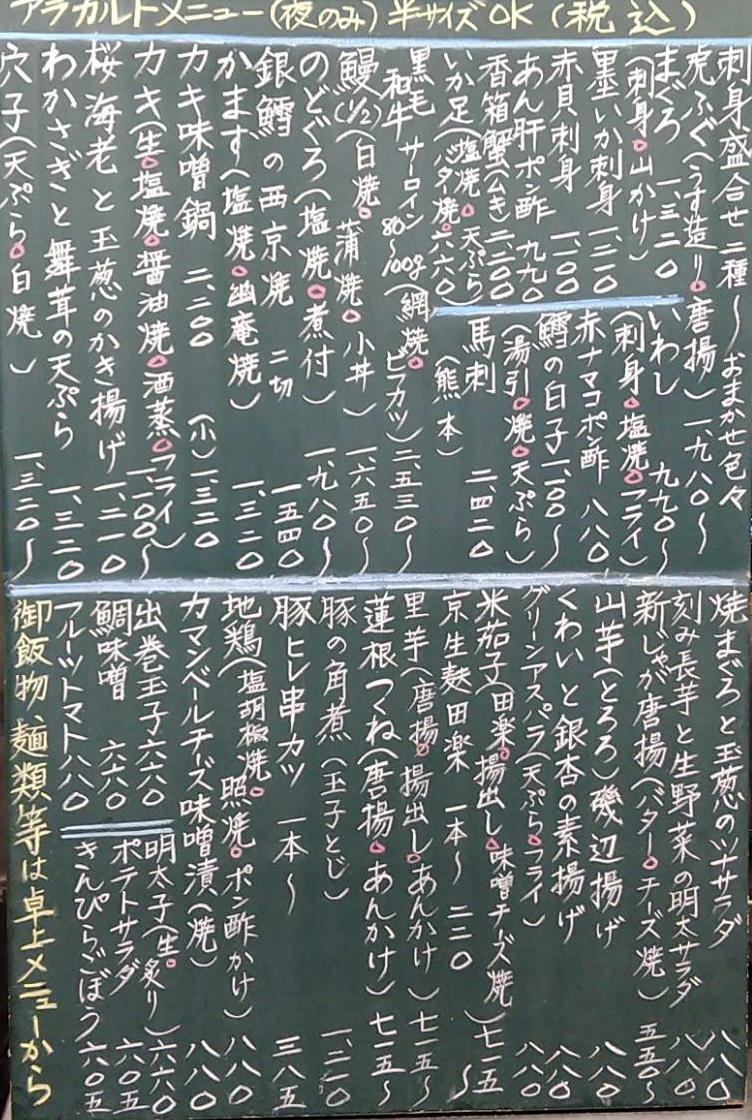 アラカルトメニュー(夜のみ)半サイズOK(税込)
刺身盛合せ二種〜おまかせ色々
虎ふぐ(うす造り○唐揚)一、九八〇〜
まぐろ 一、三二〇
(刺身○山かけ)
墨いか刺身 一、二一〇
赤貝刺身 一、一〇〇
あん肝ポン酢 九九〇
香箱蟹(むき)二、二〇〇
いか足(塩焼○天ぷら)
(バタ焼○六六〇)
いわし 九九〇〜
(刺身○塩焼○フライ)
赤ナマコポン酢 八八〇
鱈の白子 一、一〇〇〜
(湯引○焼○天ぷら)
馬刺 二、四二〇
(熊本)
黒毛和牛 サーロイン 80〜100g(網焼○ビフカツ)二、五三〇〜
鰻(1/2)(白焼○蒲焼○小丼)一、六五〇〜
のどぐろ(塩焼○煮付)一、九八〇〜
銀鱈の西京焼 二切 一、五四〇
かます(塩焼○幽庵焼)一、三二〇
カキ味噌鍋 二、二〇〇 (小)一、三二〇
カキ(生○塩焼○醤油焼○酒蒸○フライ)一、一〇〇〜
桜海老と玉葱のかき揚げ 一、二一〇
わかさぎと舞茸の天ぷら 一、三二〇
穴子(天ぷら○白焼)一、三二〇〜
焼まぐろと玉葱のツナサラダ 八八〇
刻み長芋と生野菜の明太サラダ 八八〇
新じゃが唐揚(バター○チーズ焼)五五〇〜
山芋(とろろ)磯辺揚げ 八八〇
くわいと銀杏の素揚げ 八八〇
グリーンアスパラ(天ぷら○フライ)八八〇
米茄子(田楽○揚出し○味噌チーズ焼)七一五
京生麩田楽 一本〜 二二〇〜
里芋(唐揚○揚出し○あんかけ)七一五〜
蓮根つくね(唐揚○あんかけ)七一五〜
豚の角煮(玉子とじ)一、二一〇
豚ヒレ串カツ 一本〜 三八五
地鶏(塩胡椒焼○照焼○ポン酢かけ)八八〇
カマンベールチーズ味噌漬(焼)八八〇
出巻玉子 六六〇
鯛味噌 六六〇
フルーツトマト 八八〇
明太子(生○炙り)六六〇
ポテトサラダ 六〇五
きんぴらごぼう 六〇五
御飯物、麺類等は卓上メニューから